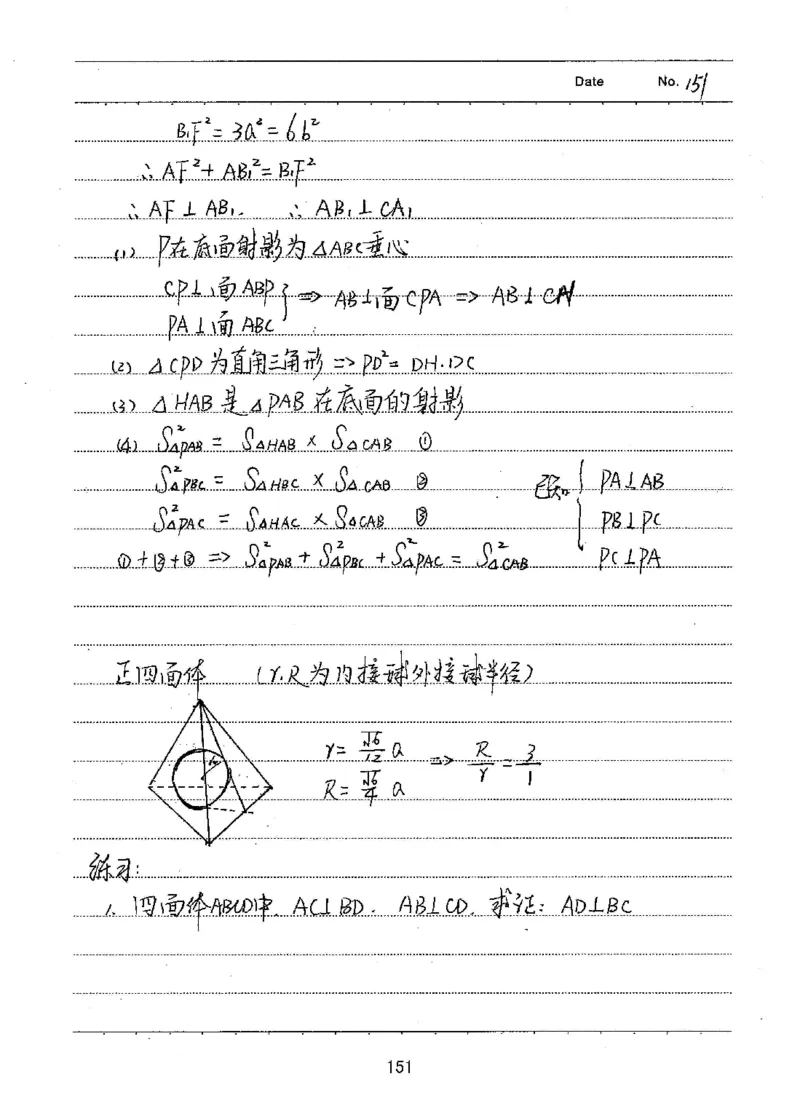 Date No. 151
B₁F² = 3a² = 6b²
∴ AF² + AB₁² = B₁F²
∴ AF ⊥ AB₁. ∴ AB₁ ⊥ CA₁
(1) P在底面射影为△ABC垂心
CP⊥面ABP
PA⊥面ABC } ⇒ AB⊥面CPA ⇒ AB⊥CH
(2) △CPD为直角三角形 ⇒ PD² = DH·DC
(3) △HAB是△PAB在底面的射影
(4) S²△PAB = S△HAB × S△CAB ①
S²△PBC = S△HBC × S△CAB ②
S²△PAC = S△HAC × S△CAB ③
①+②+③ ⇒ S²△PAB + S²△PBC + S²△PAC = S²△CAB
已知 { PA⊥AB
PB⊥PC
PC⊥PA
正四面体 (r.R为内接球外接球半径)
r = √6/12 a
R = √6/4 a
⇒ R/r = 3/1
练习:
1. 四面体ABCD中. AC⊥BD. AB⊥CD. 求证: AD⊥BC
151